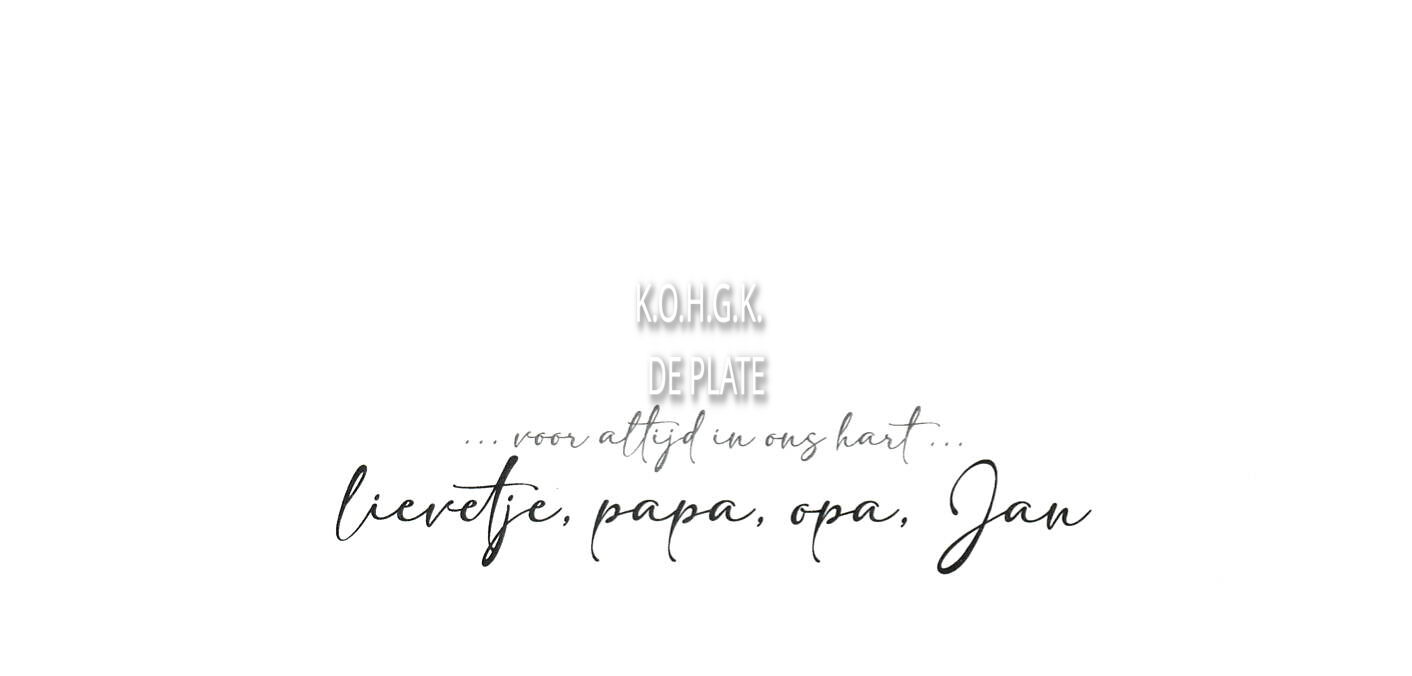 K.O.H.G.K.
DE PLATE
... voor altijd in ons hart ...
lievetje, papa, opa, Jan